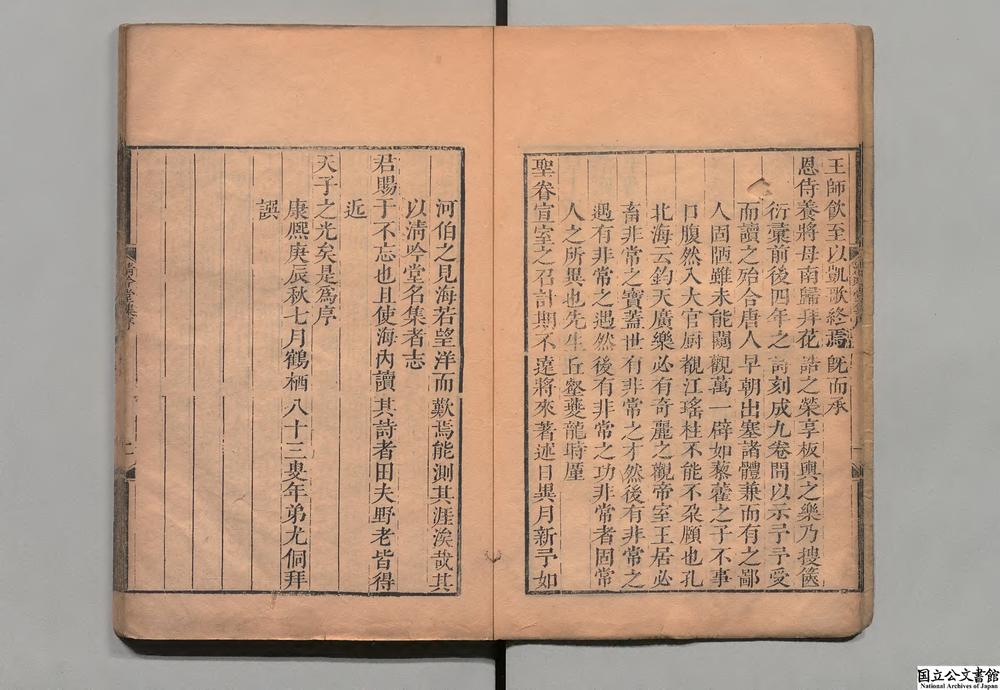 王師飲至以凱歌終焉旣而承
恩侍養將母南歸拜花誥之榮享板輿之樂乃搜篋
衍彚前後四年之詩刻成九卷問以示予予受
而讀之殆合唐人早朝出塞諸體兼而有之鄙
人固陋雖未能闚觀萬一辟如藜藿之子不事
口腹然入大官厨覩江瑤柱不能不朶頤也孔
北海云鈞天廣樂必有奇麗之觀帝室王居必
畜非常之寶蓋世有非常之才然後有非常之
遇有非常之遇然後有非常之功非常者固常
人之所異也先生丘壑夔龍時厪
聖眷宣室之召計期不遠將來著述日異月新予如
河伯之見海若望洋而歎焉能測其涯涘哉其
以清吟堂名集者志
君賜于不忘也且使海內讀其詩者田夫野老皆得
近
天子之光矣是爲序
康熈庚辰秋七月鶴栖八十三叟年弟尤侗拜
譔
清吟堂集序
国立公文書館
National Archives of Japan